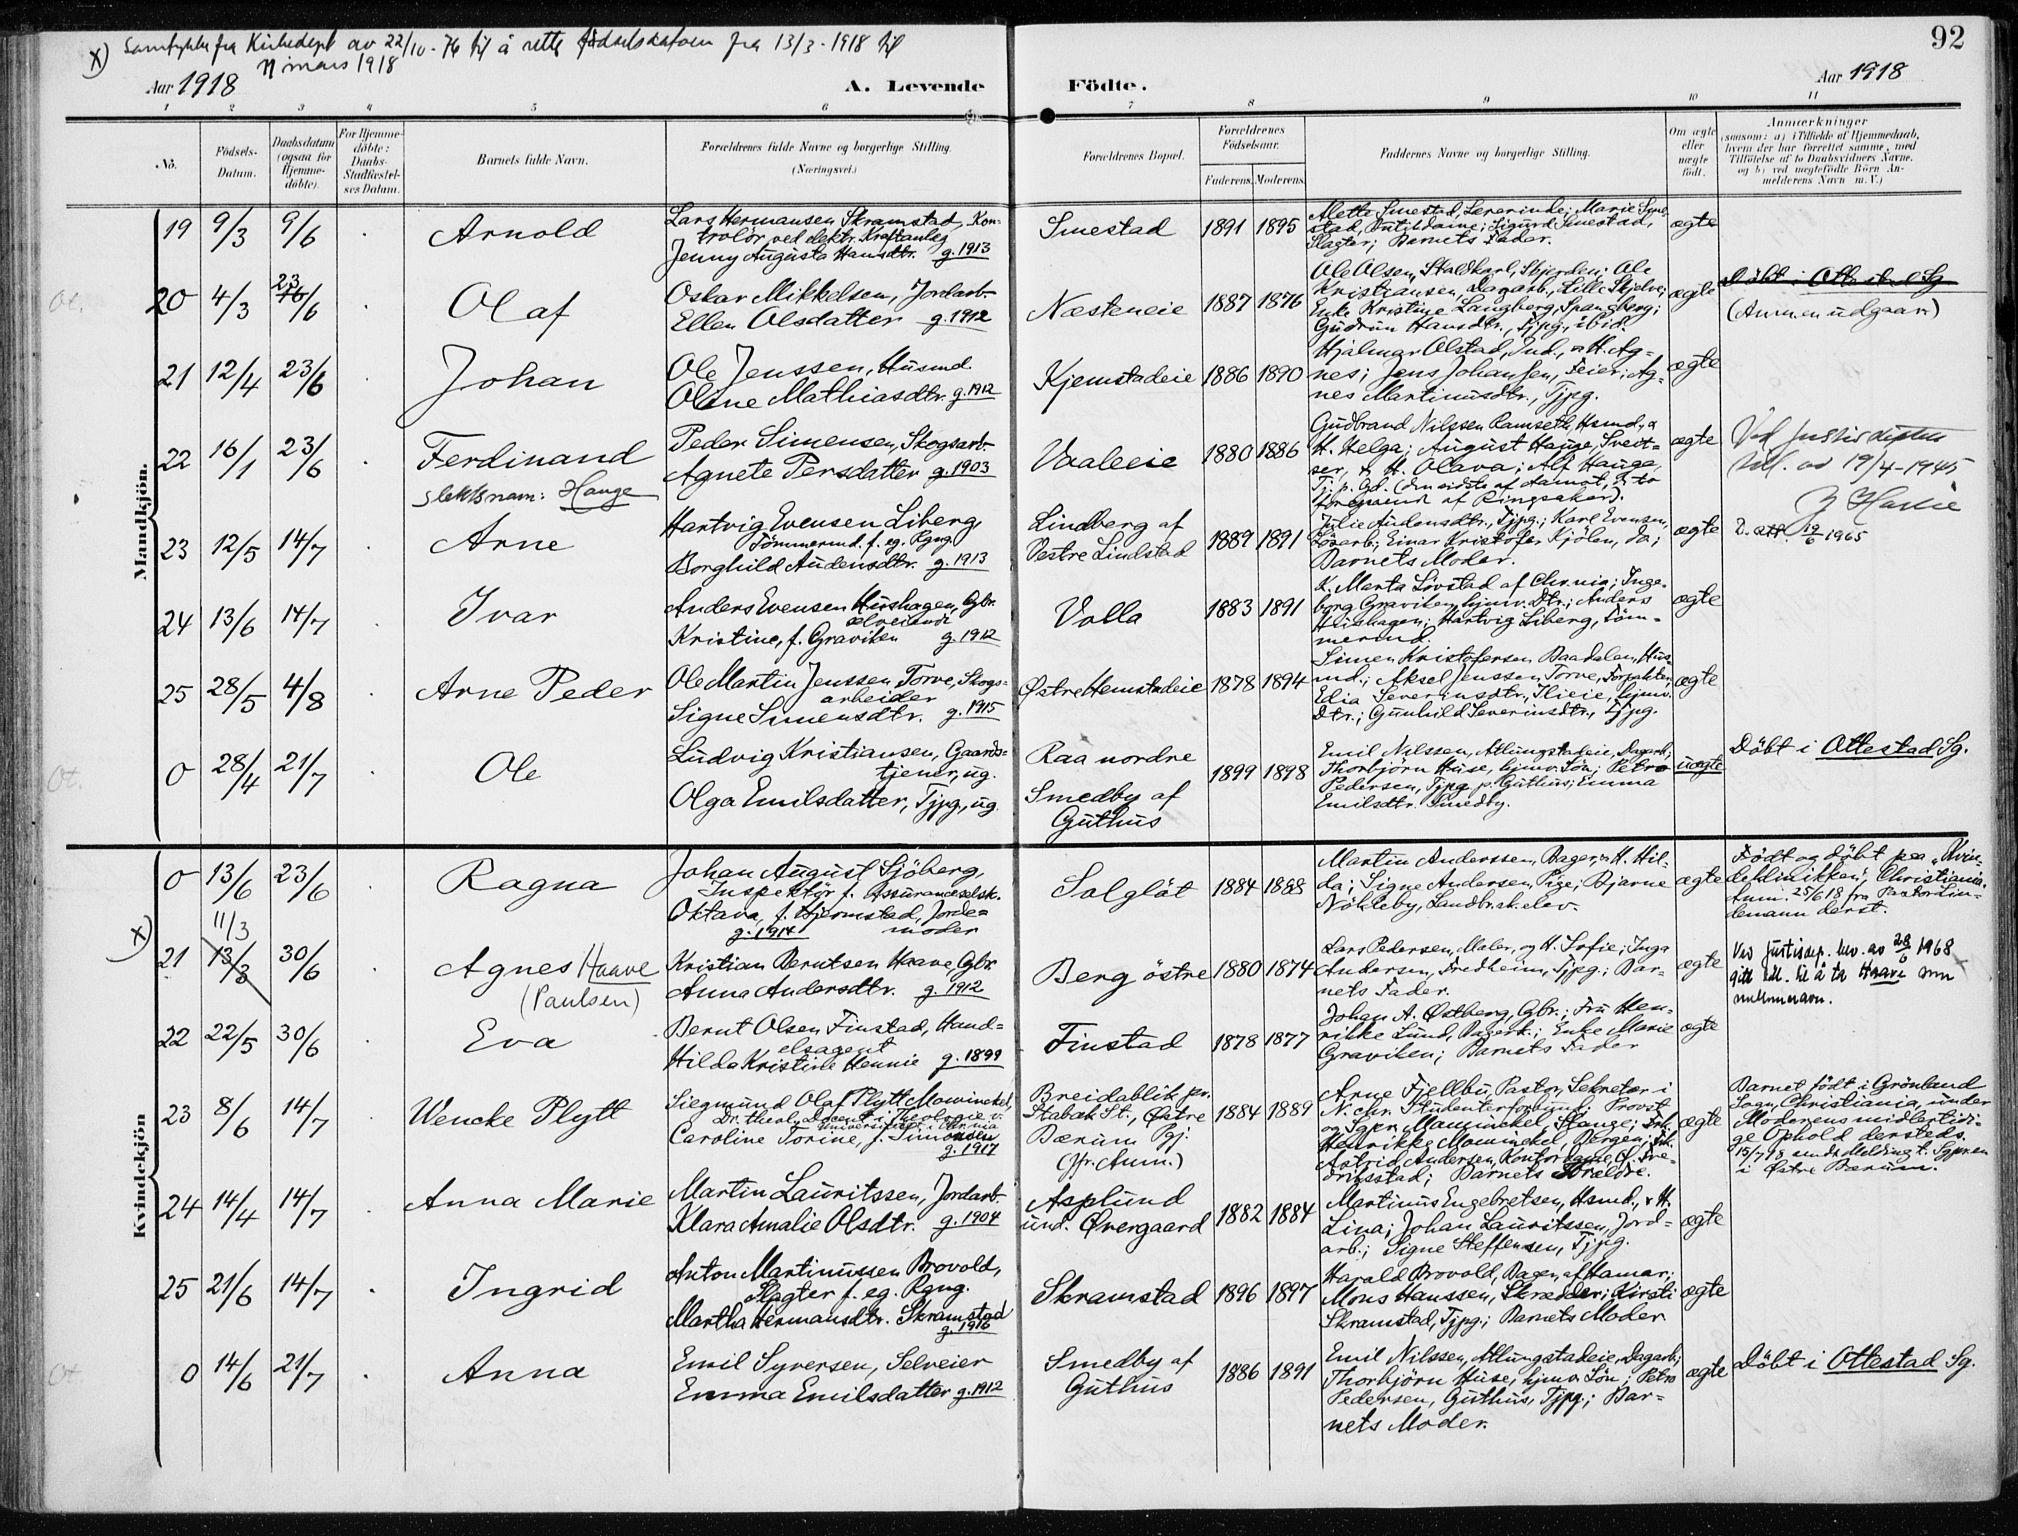 92
x) Samtykke fra Kirkedept av 22/10-76 til å rette fødselsdatoen fra 13/3-1918 til
11 mars 1918
Aar 1918
A. Levende
Födte.
Aar 1918
1 2 3 4 5 6 7 8 9 10 11
No.
Födsels-
Datum.
Daabsdatum
(ogsaa for
Hjemme-
döbte).
For Hjemme-
döbte:
Daabs-
Stadfæstel-
ses Datum.
Barnets fulde Navn.
Forældrenes fulde Navne og borgerlige Stilling.
(Næringsvei.)
Forældrenes Bopæl.
Forældrenes
Födselsaar.
Faderens. Moderens.
Faddernes Navne og borgerlige Stilling.
Om ægte
eller
uægte
födt.
Anmærkninger
(saasom: a) i Tilfælde af Hjemmedaab,
hvem der har forrettet samme, med
Tilföielse af to Daabsvidners Navne.
og b) ved uægtefödte Börn An-
melderens Navn m. V.)
Mandkjön.
19 9/3 9/6 Arnold
Lars Hermansen Skramstad, Kon-
trolör ved elektr. Kraftanlæg
Jenny Augusta Hansdtr. g. 1913
Smestad 1891 1895
Mette Smestad, Lærerinde; Marie Sme-
stad, Butikdame; Sigurd Smestad,
Slagter; Barnets Fader.
ægte
Ot.
20 4/3 23/6 Olaf
Oskar Mikkelsen, Jordarb.
Ellen Olsdatter g. 1912
Næsteneie 1887 1876
Ole Olsen, Staldkarl, Skjerden; Ole
Kristiansen, Dagarb., Lille Skjelve;
Enke Kristine Langberg, Spangberg;
Gudrun Hansdtr., Tjpg., ibid.
ægte
Döbt i Ottestad Sg.
(Anm. en udgaar)
21 12/4 23/6 Johan
Ole Jenssen, Husmd.
Oline Mathiasdtr. g. 1912
Kjemstadeie 1886 1890
Hjalmar Olstad, Ind., & H. Ag-
nes; Jens Johansen, Feier; Ag-
nes Martinusdtr., Tjpg.
ægte
22 16/1 23/6 Ferdinand
slektsnam: Hauge
Peder Simensen, Skogsarb.
Agnete Persdatter g. 1903
Vaaleeie 1880 1886
Gudbrand Nilssen Ramseth, Hsmd., &
H. Helga; August Hauge, Sveit-
ser, & H. Olava; Alf Hauge,
Tj. p. Gd. (den sidste af Hamar, de to
foregaaend af Ringsaker).
ægte
Ved Justisdeptets
till. av 19/4-1945
23 12/5 14/7 Arne
Hartvig Evensen Liberg,
Tömmermd. f. eg. Rgng.
Borghild Audensdtr. g. 1913
Lindberg af
Vestre Lindstad 1889 1891
Julie Audensdtr., Tjpg.; Karl Evensen,
Lösarb.; Einar Kristofer Kjölen, do;
Barnets Moder.
ægte
D. att 19/6 1965
24 13/6 14/7 Ivar
Anders Evensen Hushagen, Gbr.
selveiende
Kristine, f. Graviken g. 1912
Volla 1883 1891
K. Marta Lövstad af Chr.nia; Inge-
borg Graviken, hjmv. Dtr.; Anders
Hushagen; Hartvig Liberg, Töm-
mermd.
ægte
25 28/5 4/8 Arne Peder
Ole Martin Jenssen Torve, Skogs-
arbeider
Signe Simensdtr. g. 1915
Østre Hemstadeie 1878 1894
Simen Kristofersen Baadalen, Hus-
md.; Aksel Jenssen Torve, Forpakter;
Edia Severinsdtr., Ilieie, hjmv.
Dtr.; Gunhild Severinsdtr., Tjpg.
ægte
Ot.
0 28/4 21/7 Ole
Ludvig Kristiansen, Gaards-
tjener, ug.
Olga Emilsdatter, Tjpg., ug.
Raa nordre
Smedby af
Guthus
1899 1898
Emil Nilssen, Atlungstadeie, Dagarb.;
Thorbjörn Huse, hjmv. Sön; Petra
Pedersen, Tjpg. p. Guthus; Emma
Emilsdtr. Smedby.
uægte
Döbt i Ottestad Sg.
Kvindekjön
0 13/6 23/6 Ragna
Johan August Sjöberg,
Inspektör f. Assuranceselsk.
Oktava, f. Hjermstad, Jorde-
g. 1914 moder
Solgløt 1884 1888
Martin Anderssen, Bager, & H. Hil-
da; Signe Andersen, Pige; Bjarne
Nökleby, Landbr.sk.elev.
ægte
Födt og döbt paa „Kvin-
deklinikken", Christiania.
Anm. 25/6 18 fra Pastor Lin-
demann derst.
x)
21 11/3 13/3 30/6 Agnes Haave
(Paulsen)
Kristian Berntsen Haave, Gbr.
Anna Andersdtr. g. 1912
Berg östre 1880 1874
Lars Pedersen, Maler, og H. Sofie; Inga
Andersen, Fredheim, Tjpg.; Bar-
nets Fader.
ægte
Ved Justisdep. bev. av 28/6 1968
gitt till. til å ta Haave som
mellomnavn.
22 22/5 30/6 Eva
Bernt Olsen Finstad, Hand-
elsagent
Hilda Kristine Hennie g. 1899
Finstad 1878 1877
Johan A. Østberg, Gbr.; Fru Hen-
rikke Lund, Bagersk.; Enke Marie
Graviken; Barnets Fader
ægte
23 8/6 14/7 Wencke Plytt
Siegmund Olaf Plytt Mowinckel,
Dr. theol., Docent i Theologie v.
Universitetet i Chr.nia
Caroline Torine, f. Simonsen
g. 1917
Breidablik pr.
Stabæk St., Østre
Bærum Pgj.
(Jfr. Anm.)
1884 1889
Arne Fjellbu, Pastor, Sekretær i
N. chr. Studenterforbund; Provst
og Sgpr. Mowinckel, Stange; Frk.
Henrikke Mowinckel, Bergen; Frk.
Astrid Andersen, Kontordame, Ø. Fre-
driksstad; Barnets Forældre.
ægte
Barnet födt i Grönland
Sogn, Christiania, under
Moderens midlertidi-
ge Ophold dersteds.
15/7 18 sendt Melding t. Sgpr.en
i Østre Bærum.
24 14/4 14/7 Anna Marie
Martin Lauritssen, Jordarb.
Klara Amalie Olsdtr. g. 1904
Asplund
und. Øvergaard 1882 1884
Martinus Engebretsen, Hsmd., & H.
Lina; Johan Lauritssen, Jord-
arb.; Signe Steffensen, Tjpg.
ægte
25 21/6 14/7 Ingrid
Anton Martinussen Brovold,
Slagter f. eg. Rgng.
Martha Hermansdtr. Skramstad
g. 1916
Skramstad 1896 1897
Harald Brovold, Bager, af Hamar;
Mons Hanssen, Skrædder; Kirsti
Skramstad, Tjpg.; Barnets Moder
ægte
Ot
0 14/6 21/7 Anna
Emil Syversen, Selveier
Emma Emilsdatter g. 1912
Smedby af
Guthus
1886 1891
Emil Nilssen, Atlungstadeie, Dagarb.;
Thorbjörn Huse, hjmv. Sön; Petra
Pedersen, Guthus, Tjpg.; Bar-
nets Moder.
ægte
Döbt i Ottestad Sg.